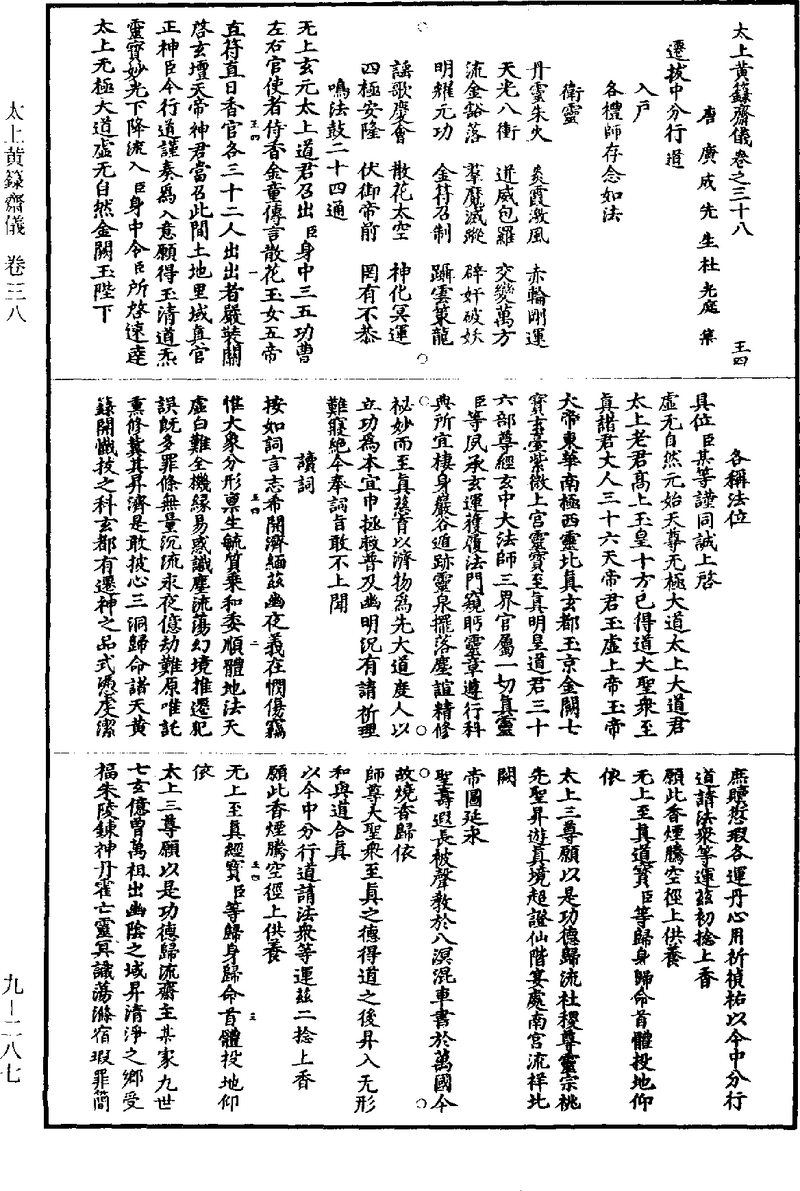 太上黄籙齋儀卷之三十八　王四
唐廣成先生杜光庭集
遷拔中分行道
入戶
各禮師存念如法
衛靈
丹靈朱火　炎霞激風　赤輪剛運
天光八衝　迸威包羅　交變萬方
流金豁落　羣魔滅蹤　碎奸破妖
明耀元功　金符召制　躡雲策龍
謡歌慶會　散花太空　神化冥運
四極安隆　伏御帝前　罔有不恭
鳴法鼓二十四通
无上玄元太上道君召出臣身中三五功曹
左右官使者侍香金童傳言散花玉女五帝
直符直日香官各三十二人出出者嚴裝關
啓玄壇天帝神君當召此間土地里域真官
正神臣今行道謹奏爲入意願得玉清道炁
靈寶妙光下降流入臣身中令臣所啓速達
太上无極大道虛无自然金闕玉陛下
各稱法位
具位臣某等謹同誠上啓
虛无自然元始天尊无極大道太上大道君
太上老君髙上玉皇十方已得道大聖衆至
真諸君丈人三十六天帝君玉虛上帝玉帝
大帝東華南極西靈北真玄都玉京金闕七
寶玄臺紫微上宫靈寶至真明皇道君三十
六部尊經玄中大法師三界官屬一切真靈
臣等夙承玄運獲履法門窺眄靈章遵行科
典所宜棲身巖谷遁跡靈泉擺落塵諠精修
祕妙而至真慈育以濟物爲先大道度人以
立功爲本宜申拯救普及幽明況有請祈理
難寢絕今奉詞旨敢不上聞
讀詞
按如詞言志希開濟緬兹幽夜義在憫傷竊
惟大衆分形禀生毓質乗和委順體地法天
虛白難全機緣易惑識塵流蕩幻境推遷犯
誤既多罪條無量沉流永夜億劫難原唯託
熏修冀其昇濟是敢披心三洞歸命諸天黄
籙開懺拔之科玄都有遷神之品式憑虔潔
庶贖愆瑕各運丹心用祈禎祐以今中分行
道請法衆等運兹初捻上香
願此香煙騰空徑上供養
无上至真道寶臣等歸身歸命首體投地仰
依
太上三尊願以是功德歸流社稷尊靈宗祧
先聖昇遊真境超證仙階宴處南宫流祥北
闕
帝圖延永
聖壽遐長被聲教於八溟混車書於萬國今
故燒香歸依
師尊大聖衆至真之德得道之後昇入无形
和與道合真
以今中分行道請法衆等運兹二捻上香
願此香煙騰空徑上供養
无上至真經寶臣等歸身歸命首體投地仰
依
太上三尊願以是功德歸流齋主某家九世
七玄億曾萬祖出幽陰之域昇清淨之鄉受
福朱陵鍊神丹霍亡靈冥識蕩滌宿瑕罪簡
太上黄籙齋儀　卷三八
九—二八七